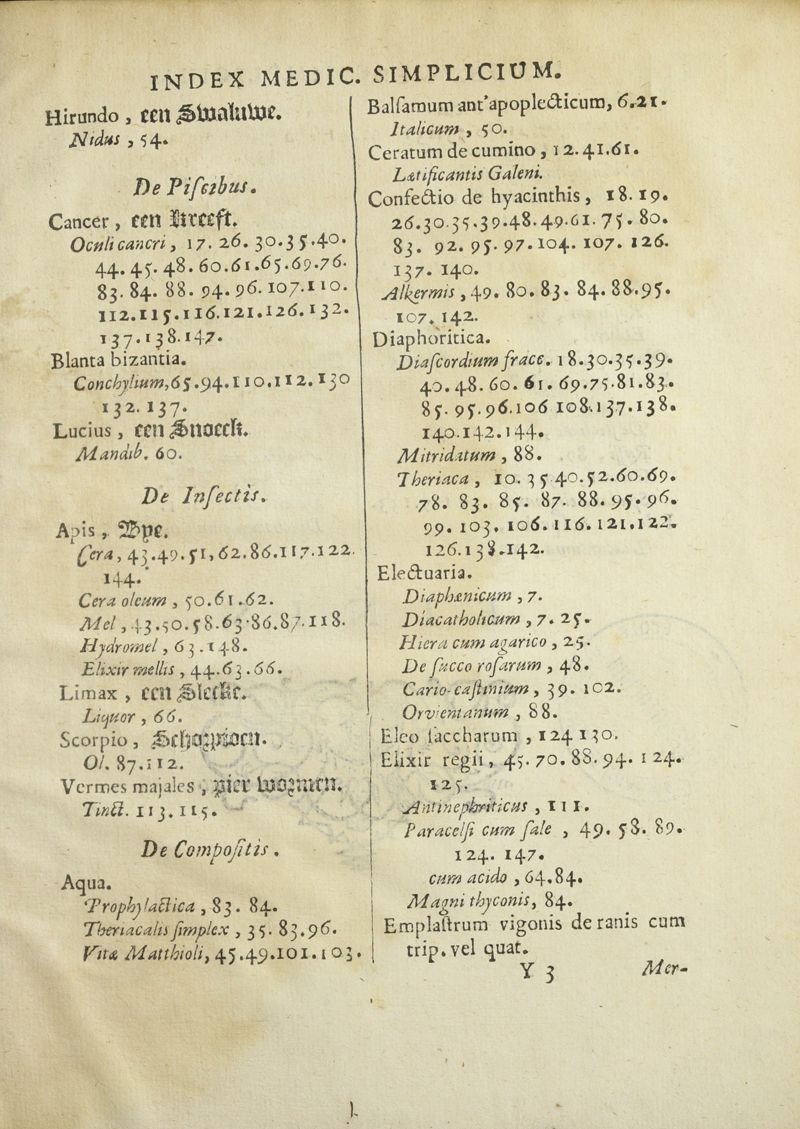 INDEX MEDIC. SIMPLICIUM.
Hirundo , een Swaluwe.
Nidus , 54.
De Piſcibus.
Cancer , een Kreeft.
Oculi cancri , 17. 26. 30.35.40.
44. 45. 48. 60.61.65.69.76.
83. 84. 88. 94. 96. 107.110.
112.115.116.121.126.132.
137.138.147.
Blanta bizantia.
Conchylium,65.94.110.112.130
132. 137.
Lucius , een Snoeck.
Mandib. 60.
De Inſectis.
Apis , Bye.
Cera, 43.49.51,62.86.117.122.
144.
Cera oleum , 50.61.62.
Mel , 43.50.58.63.86.87.118.
Hydromel , 63.148.
Elixir mellis , 44.63.66.
Limax , een Slecke.
Liquor , 66.
Scorpio , Schorpioen.
Ol. 87.112.
Vermes majales , pier wormen.
Tinct. 113.115.
De Compoſitis .
Aqua.
Prophylactica , 83. 84.
Theriacalis ſimplex , 35. 83.96.
Vitæ Matthioli, 45.49.101.103.
Balſamum ant'apoplecticum, 6.21.
Italicum , 50.
Ceratum de cumino , 12.41.61.
Lætificantis Galeni.
Confectio de hyacinthis , 18. 19.
26.30.35.39.48.49.61. 75. 80.
83. 92. 95. 97.104. 107. 126.
137. 140.
Alkermis , 49. 80. 83. 84. 88.95.
107. 142.
Diaphoritica.
Diaſcordium frace. 18.30.35.39.
40. 48. 60. 61. 69.75.81.83.
85. 95.96.106 108.137.138.
140.142.144.
Mitridatum , 88.
Theriaca , 10. 35 40.52.60.69.
78. 83. 85. 87. 88.95.96.
99. 103. 106.116. 121.122.
126.138.142.
Electuaria.
Diaphænicum , 7.
Diacatholicum , 7. 25.
Hiera cum agarico , 25.
De ſucco roſarum , 48.
Cario-caſtinium , 39. 102.
Orvientanum , 88.
Eleo ſaccharum , 124 130.
Elixir regii, 45. 70. 88. 94. 124.
125.
Antinephriticus , 111.
Paracelſi cum ſale , 49. 58. 89.
124. 147.
cum acido , 64.84.
Magni thyconis, 84.
Emplaſtrum vigonis de ranis cum
trip. vel quat.
Y 3
Mer-